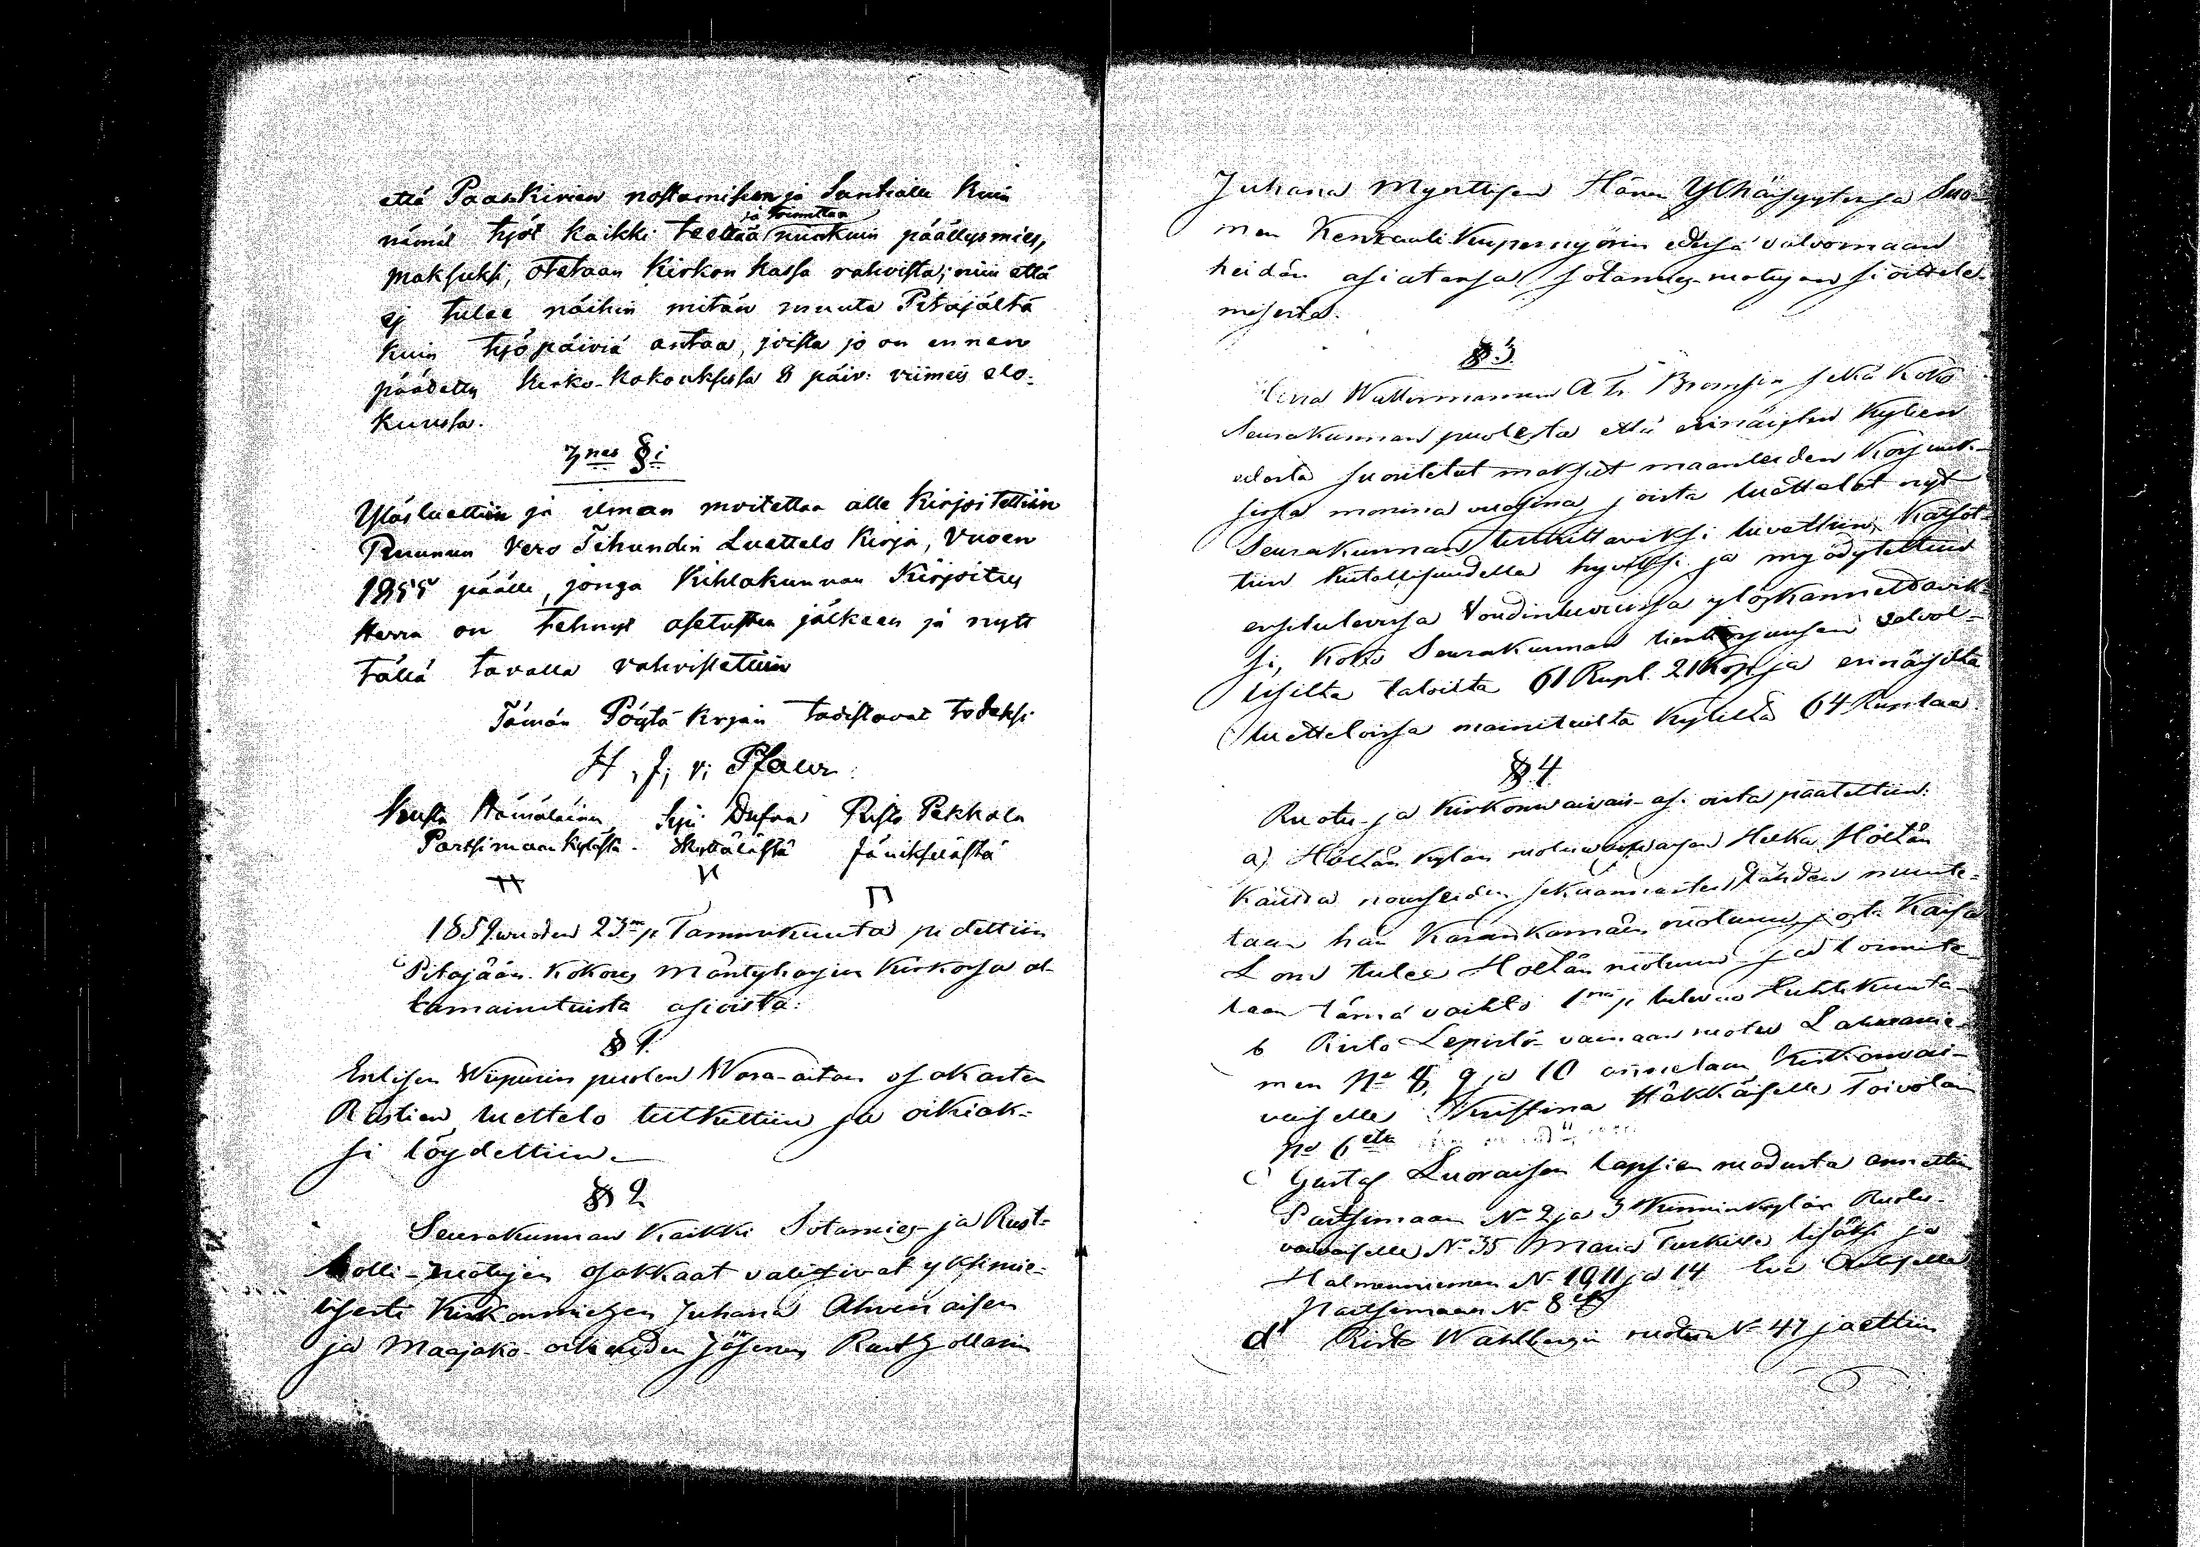 että Paaskiven nostamisen ja Santialle kuin
nämät työt kaikki teettää ja toimittaa niinkuin päällysmies,
maksuksi, otetaan Kirkon kassa rahoista; niin että
ej tulee näihin mitän muuta Pitäjältä
kuin työpäiviä antaa, joista jo on ennen
päädetty Kirko-kokouksesa 8 päiv: viimeis elo-
kuussa.
7nes §i
Ylösluettiin ja ilman moitetta alle kirjoitettiin
Ruunun Vero Tihundin Luettelo Kirja, Vuoen
1855 päälle, jonga Kihlakunnan Kirjoitus
Herra on tehnyt asetusten jälkeen ja nytt
tällä tavalla vahvistettiin
Tämän Pöytä Kirjan todistavat todeksi
H. J. v; Pfaler.
Kusta Hämäläinen Yrjö Dufva Risto Pekkola
Partsimaan kylästä - Skyttälästä Jänikselästä
1859 vuoden 23m p. Tammikuuta pidettiin
Pitäjään kokous Mäntyharjun Kirkossa al-
lamainituista asioista:
§ 1.
Entisen Wiipurin puolen Wara-aitan osakasten
Rästien luettelo tutkittiin ja oikiak-
si löydettiin.
§ 2
Seurakunnan kaikki Sotamies- ja Rust-
holli-ruotujen osakkaat valitsivat yksimie-
lisesti Kirkonmiehen Juhana Ahvenaisen
ja Maajako-oikeuden Jäsenen Rusthollarin
Juhana Mynttisen Hänen Ylhäisyytensä Suo-
men Kenraali Kupernyörin edessä valvomaan
heidän asiatansa sotamies-ruotujen sioittele-
misesta.
§ 3.
Wattermannin A. Fr. Bromsin sekä koko
Seurakunnan puolesta että erinäisten kylien
edestä suoritetut maksut maanteiden korjuuk-
sista monina vuosina, joista luettelot nyt
Seurakunnan tutkittaviksi luvettiin, katsot-
tiin kiitollisuudella hyviksi ja myödytettiin
ensitulevassa Voudinluvussa yloskannettavik-
si, koko Seurakunnan valvol-
lisilta taloilta 61 Rupl. 21 Kop. ja erinäisiltä
luetteloissa mainituilta kyliltä 64 Ruplaa.
§ 4.
Ruotu- ja Kirkonwaivais-asioista päätettiin:
a) Höltän kylän ruotuwaivaisen Helka Höltän
kautta nousseiden sekaannusten tähden muute-
taan hän Karankamäen ruotuun josta Kaisa
Lom tulee Höltän ruotuun ja toimite-
taan tämä vaihto 1nä p. tulevaa Huhtikuuta
b Risto Lepistö vainaan ruotu Lahnanie-
men No 8, 9 ja 10 annetaan Kirkonvai-
vaiselle Kristina Häkkäiselle Toivolan
No 6sta
c Gustaf Luoraisen lapsien ruodusta annettiin
Partsimaan No 2 ja 3 Kinninkylän Ruotu-
vaivaiselle No 35 Maria Turkille lisäksi ja
Halmenniemen No 10, 11 ja 14 Eva
Partsimaan No 8
d Risto Wahlbergin ruotu No 47 jaettiin